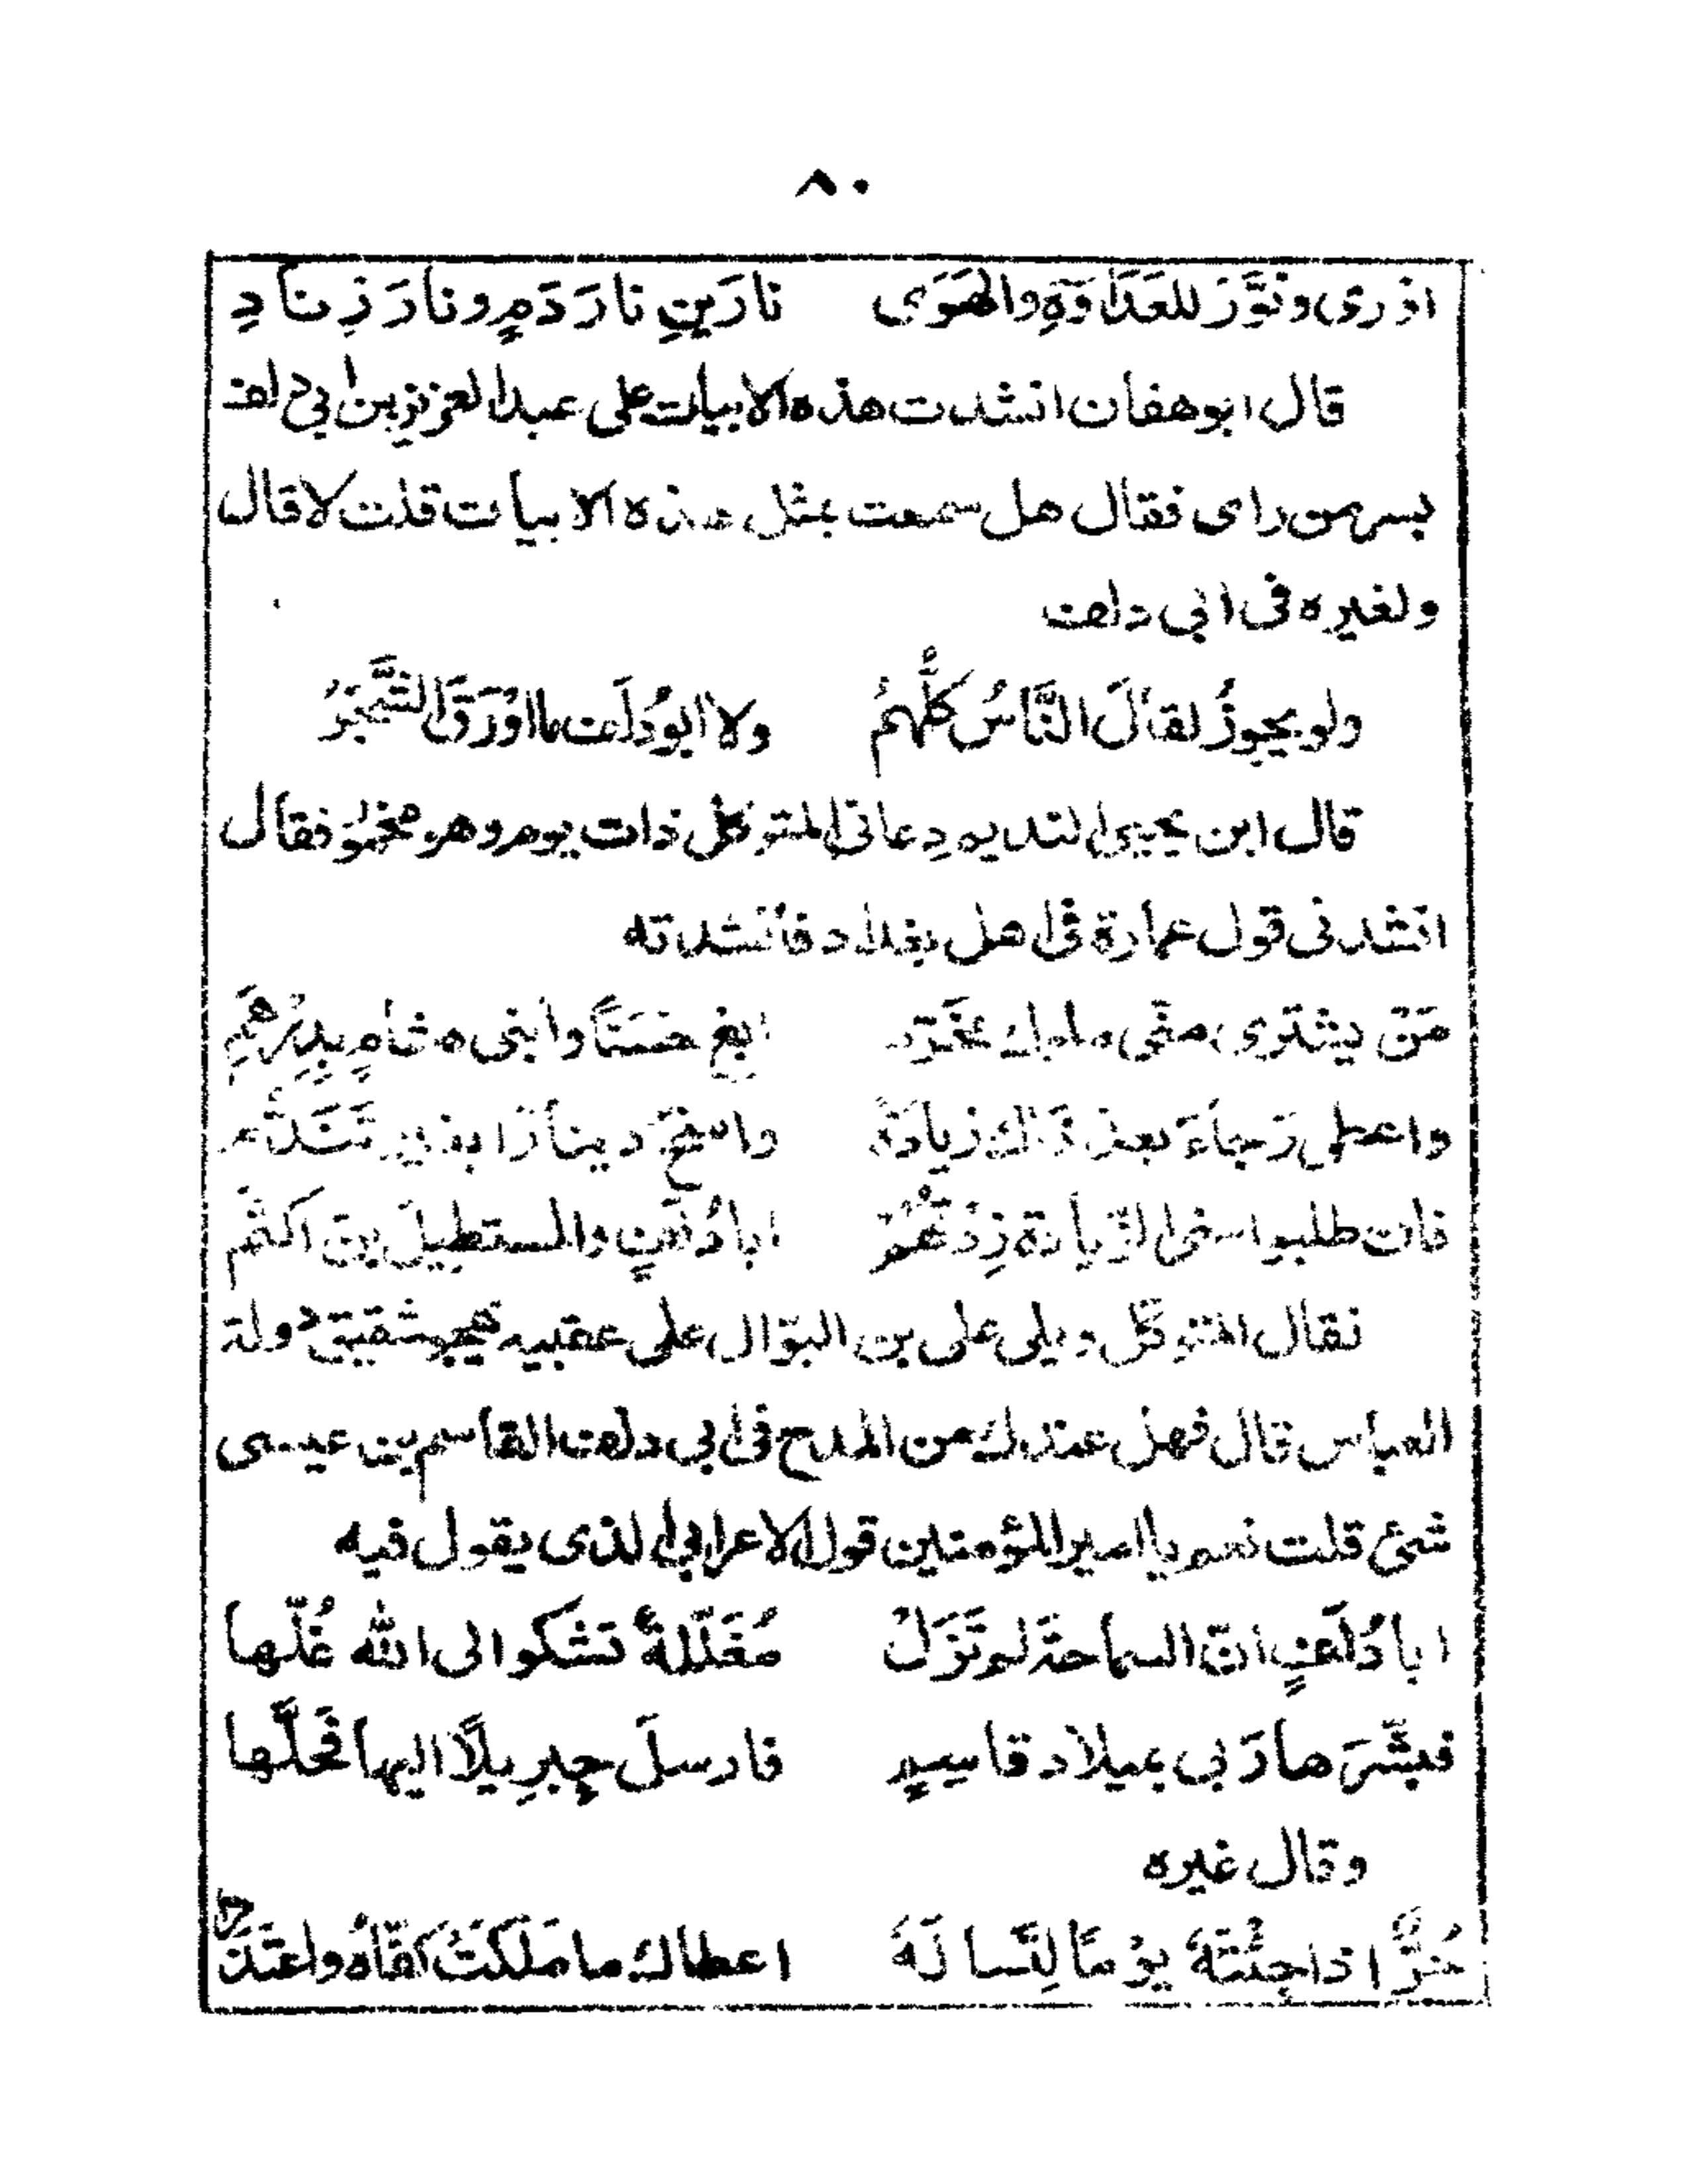 ٨٠
اذری ونَوَّرَ للعَدَاوَةِ والهَوَی نارَينِ نارَ دَمٍ ونارَ زِنادِ
قال ابوهفان انشدت هذه الابيات علی عبدالعزيز بن ابی دلف
بسر من رای فقال هل سمعت بمثل هذه الابيات قلت لا قال
ولغيره فی ابی دلف
ولو يجوزُ لقالَ النَّاسُ كلُّهُمُ ولا ابو دُلَف ما اوْرَقَ الشَّجَرُ
قال ابن يحيی النديم دعانی المتوكل ذات يوم وهو مخمور فقال
انشدنی قول عمارة فی اهل بغداد فانشدته
مَن يشتری منی ملوك ابع حسنًا وابنی هشامٍ بدِرْهَمِ
واعطی رَجاءً بعد ذَاك زيادَةً وامنحُ دينارًا بغير تَنَدُّم
فان طلبوا منی الزّيادة زِدتُهُمْ ابا دُلَفٍ والمستطيلَ بن اكثَم
فقال المتوكّل ويلی علی بن البوّال علی عقبيه يهجو شقيق دولة
العباس قال فهل عندك من المدح فی ابی دلف القاسم بن عيسی
شیٔ قلت نعم يا امير المؤمنين قول الاعرابی الذی يقول فيه
ابا دُلَفٍ انّ السماحةَ لم تَزَلْ مُغَلّلةً تشكو الی الله غُلّها
فبشّرَها رَبی بميلاد قاسِمٍ فارسلَ جِبرِيلًا اليها فحَلَّها
وقال غيره
حُرٌّ اذا جِئتَهُ يوْمًا لِتَسالَهُ اعطاك ما مَلَكَتْ كفّاهُ واعتَذَرا